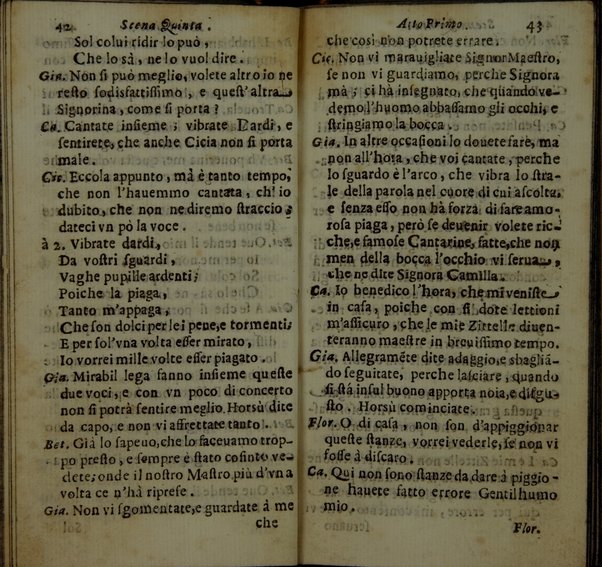 42 Scena Quinta.
Sol colui ridir lo può,
Che lo sà, ne lo vuol dire.
Gia. Non si può meglio, volete altro io ne
resto sodisfattissimo, e quest'altra
Signorina, come si porta?
Ca. Cantate insieme; vibrate Dardi, e
sentirete, che anche Cicia non si porta
male.
Cic. Eccola appunto, mà è tanto tempo,
che non l'hauemmo cantata, ch'io
dubito, che non ne diremo straccio;
dateci vn pò la voce.
à 2. Vibrate dardi,
Da vostri sguardi,
Vaghe pupille ardenti;
Poiche la piaga,
Tanto m'appaga,
Che son dolci per lei pene, e tormenti;
E per sol'vna volta esser mirato,
Io vorrei mille volte esser piagato.
Gia. Mirabil lega fanno insieme queste
due voci, e con vn poco di concerto
non si potrà sentire meglio. Horsù dite
da capo, e non vi affrettate tanto.
Bet. Già lo sapeuo, che lo faceuamo trop-
po presto, e sempre è stato cosinto ve-
dete; onde il nostro Mastro più d'vna
volta ce n'hà riprese.
Gia. Non vi sgomentate, e guardate à me
che
Atto Primo. 43
che così non potrete errare.
Cic. Non vi marauigliate Signor Maestro,
se non vi guardiamo, perche Signora
mà; ci hà insegnato, che quando ve-
demo l'huomo abbassamo gli occhi, e
stringiamo la bocca.
Gia. In altre occasioni lo douete fare, ma
non all'hora, che voi cantate, perche
lo sguardo è l'arco, che vibra lo stra-
le della parola nel cuore di cui ascolta,
e senza esso non hà forza di fare amo-
rosa piaga, però se deuenir volete ric-
che, e famose Cantarine, fatte, che non
men della bocca l'occhio vi serua,
che ne dite Signora Camilla.
Ca. Io benedico l'hora, che mi veniste
in casa, poiche con sì dote lettioni
m'assicuro, che le mie Zittelle diuen-
teranno maestre in breuissimo tempo.
Gia. Allegramẽte dite adaggio, e sbagliã-
do seguitate, perche lasciare, quando
si stà insul buono apporta noia, e disgu-
sto. Horsù cominciate.
Flor. O di casa, non son d'appiggionar
queste stanze, vorrei vederle, se non vi
fosse à discaro.
Ca. Qui non sono stanze da dare à piggio-
ne hauete fatto errore Gentilhumo
mio.
Flor.